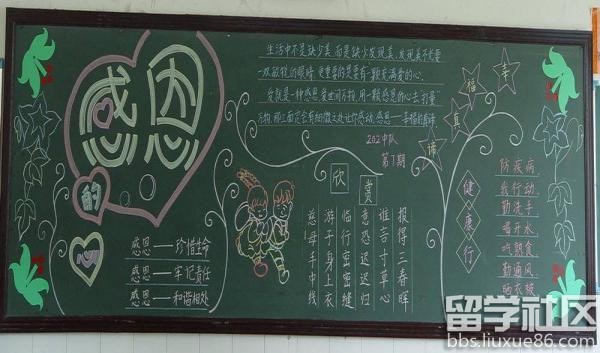 感恩
的
心
感恩——珍惜生命
感恩——牢记责任
感恩——和谐相处
生活中不是缺少美,而是缺少发现美,发现美不光要
一双敏锐的眼睛,更重要的是要有一颗充满爱的心.
爱就是一种感恩,爱世间万物,用一颗感恩的心去"打量"
万物,那
感恩——幸福的真谛
202中队
第1期
欣赏
慈母手中线
游子身上衣
临行密密缝
意恐迟迟归
谁言寸草心
报得三春晖
幸
福
真
谛
健
康
行
防疾病
我行动
勤洗手
喝开水
吃熟食
勤通风
晒衣被
留学社区
bbs.liuxue86.com